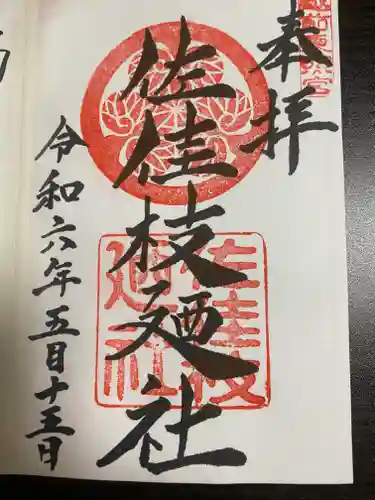 奉拝
佐佳枝廼社
令和六年五月十三日
佐佳枝
廼社